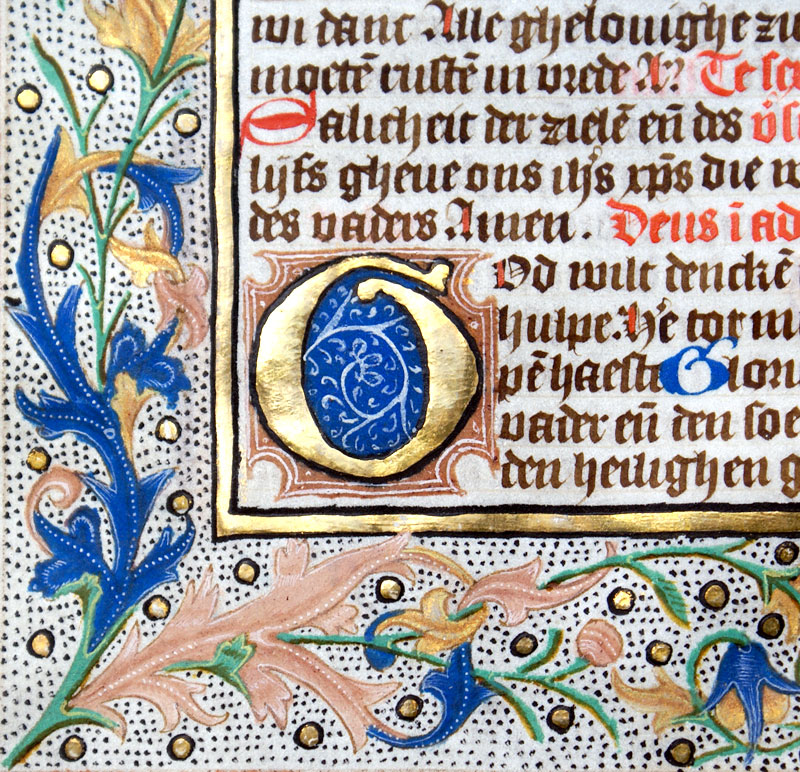 wi danc Alle ghelouighe zie
moetē rustē in vrede A?
Salicheit der zielē eñ des
lijfs gheue ons ihs xps die
des vaders Amen. Deus i ad
God wilt denckē
hulpe. He tot mi
pē haeste Glori
vader eñ den soe
den heilighen g